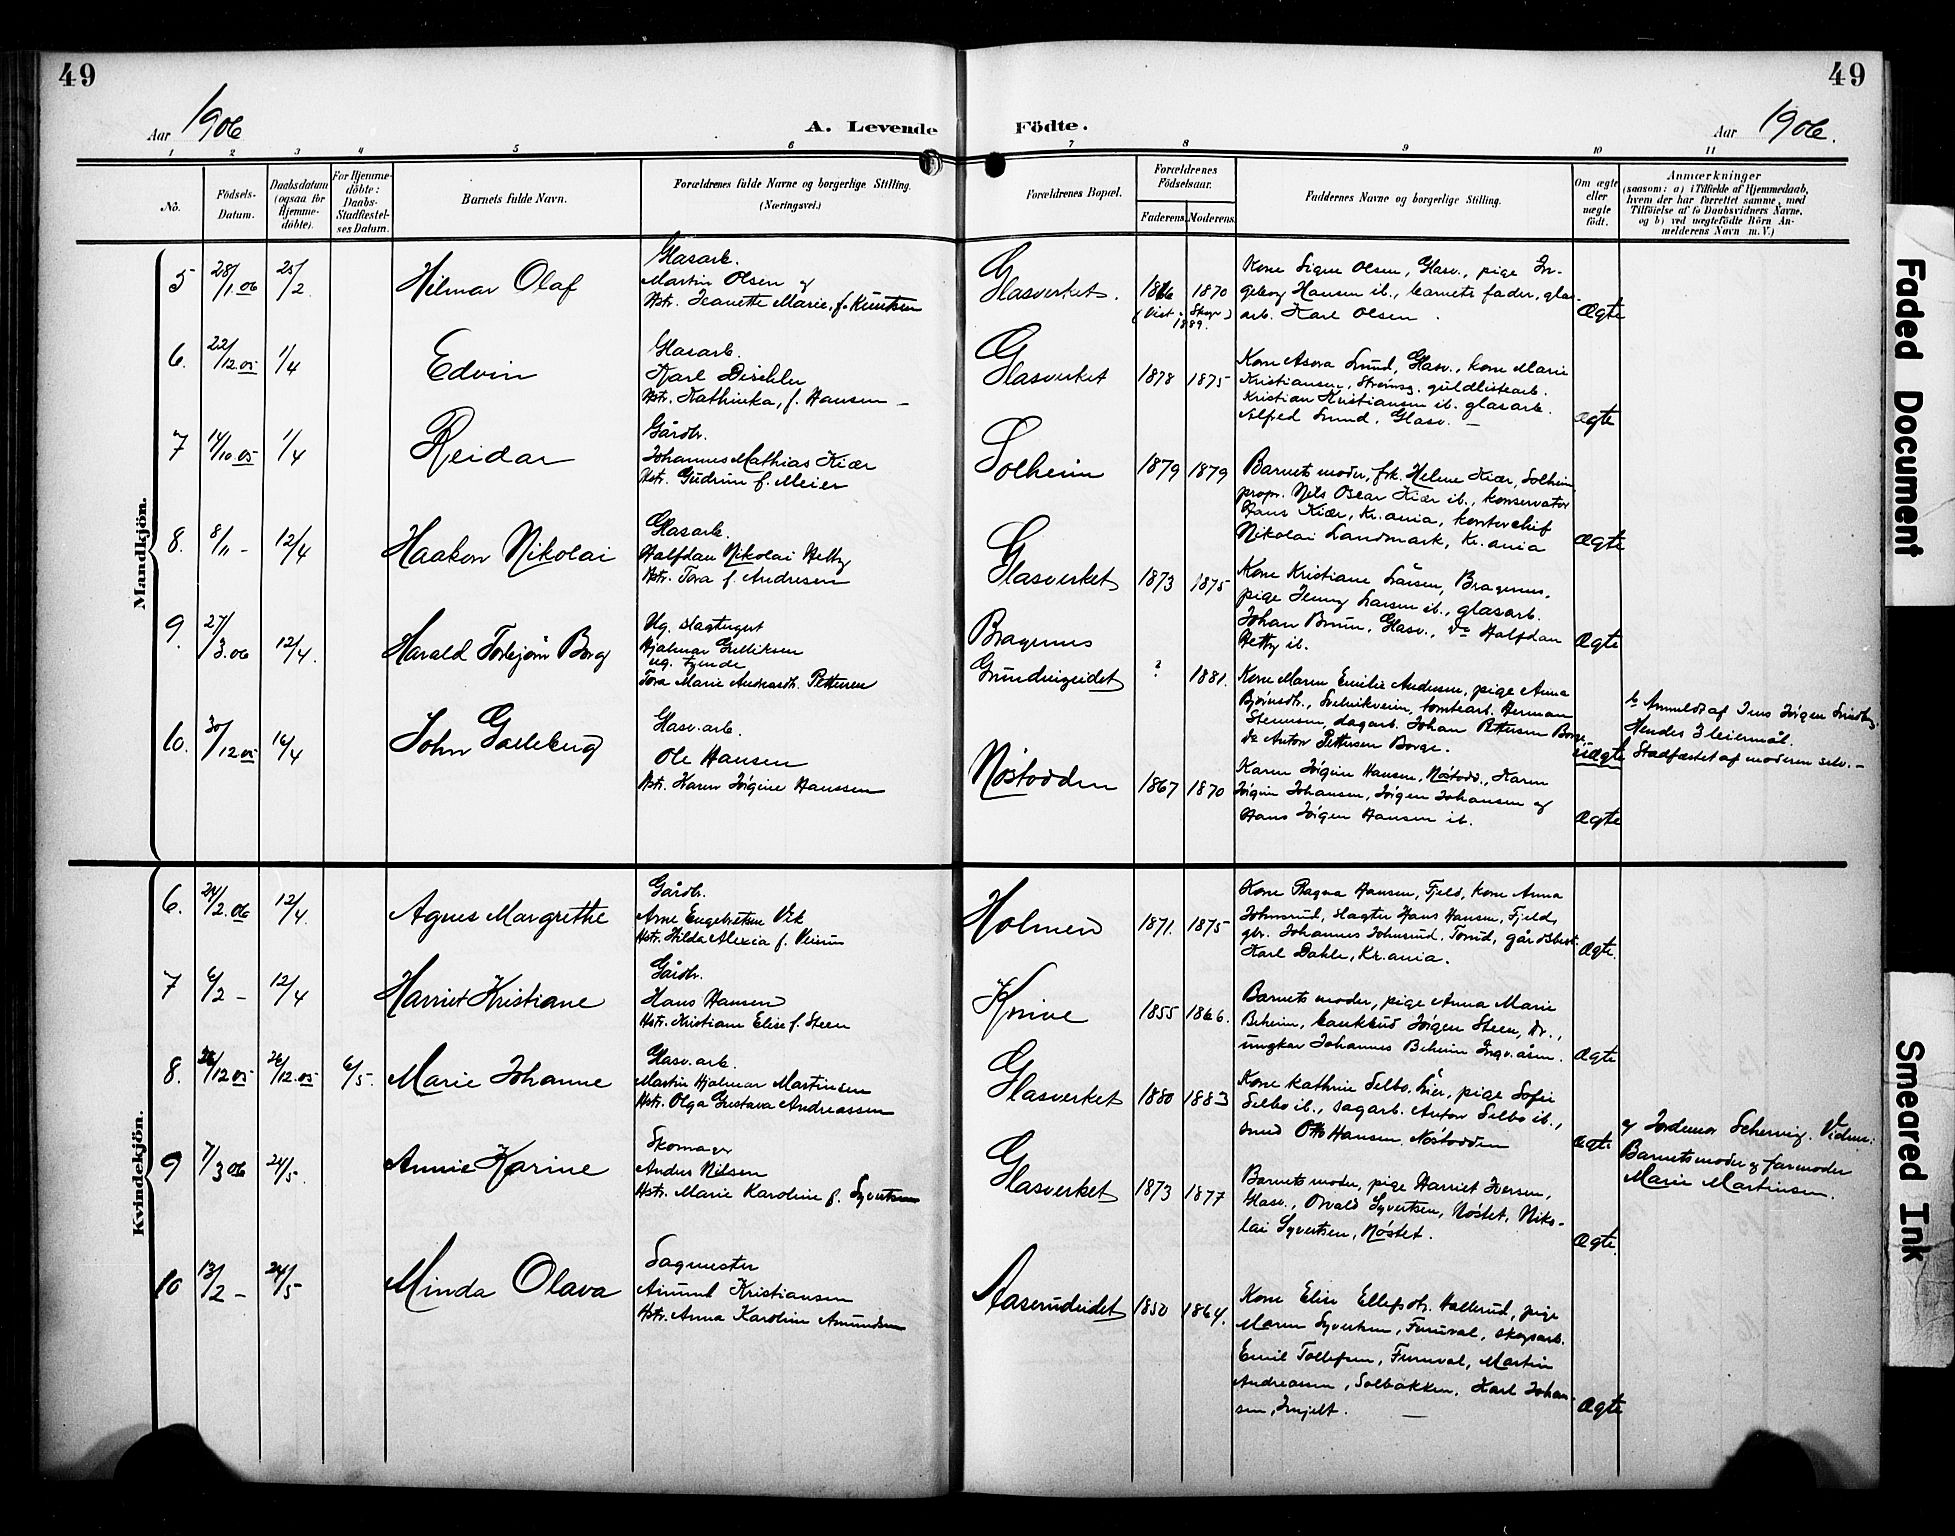 49
49
Aar 1906
A. Levende Födte.
Aar 1906.
1 2 3 4 5 6 7 8 9 10 11
No.
Födsels-Datum.
Daabsdatum (ogsaa for Hjemme-döbte).
For Hjemme-döbte: Daabs-Stadfæstel-ses Datum.
Barnets fulde Navn.
Forældrenes fulde Navne og borgerlige Stilling. (Næringsvei.)
Forældrenes Bopæl.
Forældrenes Födselsaar.
Faderens. Moderens.
Faddernes Navne og borgerlige Stilling.
Om ægte eller uægte födt.
Anmærkninger
(saasom: a) i Tilfælde af Hjemmedaab, hvem der har forrettet samme, med Tilföielse af to Daabsvidners Navne, og b) ved uægtefödte Börn Anmelderens Navn m. V.)
Mandkjön.
5 28/1 06 25/2 Hilmar Olaf
Glasarb.
Martin Olsen og
Hstr. Jeanette Marie, f. Knutsen
Glasverket. 1866 1870
Kone Signe Olsen, Glasv., pige In-
geborg Hansen ib., barnets fader, glas-
arb. Karl Olsen.
Ægte
6. 22/12.05 1/4 Edvin
Glasarb.
Karl Dischler
Hstr. Kathinka, f. Hansen –
Glasverket 1878 1875
Kone Asora Lund, Glasv., kone Marie
Kristiansen, Strømsg. guldlistearb.
Kristian Kristiansen ib. glasarb.
Alfred Lund, Glasv. –
Ægte
7 14/10 05 1/4 Reidar
Gårdbr.
Johannes Mathias Kiær
Hstr. Gudrun f. Meier
Solheim 1879 1879
Barnets moder, frk. Helene Kiær, Solheim
propr. Nils Oscar Kiær ib., konservator
Hans Kiær, Kr.ania, kontorchef
Nikolai Landmark, Kr.ania
Ægte
8. 8/11 – 12/4 Haakon Nikolai
Glasarb.
Halfdan Nikolai Hetby
Hstr. Tora f. Andresen
Glasverket 1873 1875
Kone Kristiane Larsen, Bragernes,
pige Jenny Larsen ib., glasarb.
Johan Bruun, Glasv., do Halfdan
Hetby ib.
Ægte
9. 27/3.06 12/4. Harald Torbjørn Borg
Ug. slagtergut
Hjalmar Gulliksen
ug. tjende
Tora Marie Andreasdtr. Pettersen
Bragernes
Grundvigeidet ? 1881.
Kone Maren Emilie Andersen, pige Anna
Bjørnsdtr., Svelvikveien, tomtearb. Herman
Stenersen, dagarb. Johan Pettersen Borge
do Anton Pettersen Borge.
uægte
b. Anmeldt af Jens Jørgen Lindby.
Hendes 3 leiermål.
Stadfæstet af moderen selv. –
10. 30/12 05 16/4 John Galleberg
Glasv.arb.
Ole Hansen
Hstr. Karen Jörgine Hanssen
Nøstodden 1867 1870
Karen Jörgine Hansen, Nøstodd., Karen
Jörgine Johansen, Jörgen Johansen og
Hans Jörgen Hansen ib.
Ægte
Kvindekjön.
6. 24/2.06 12/4. Agnes Margrethe
Gårdbr.
Arne Engebretsen Vik
Hstr. Hilda Alexia f. Veium
Holmen 1871. 1875
Kone Ragna Hansen, Fjeld, kone Anna
Johnsrud, slagter Hans Hansen, Fjeld,
gbr. Johannes Johnsrud, Torud, gårdsbest.
Karl Dahle, Kr.ania.
Ægte.
7 6/2 – 12/4 Harriet Kristiane
Gårdbr.
Hans Hansen
Hstr. Kristiane Elise f. Steen
Knive 1855 1866.
Barnets moder, pige Anna Marie
Beheim, bankbud Jörgen Steen, Dr.,
ungkar Johannes Beheim Ingv.åsen.
Ægte
8. 26/12 05 26/12.05 6/5. Marie Johanne
Glasv.arb.
Martin Hjalmar Martinsen
Hstr. Olga Gustava Andreassen
Glasverket 1880 1883
Kone Kathrine Selbo, Lier, pige Sofie
Selbo ib., sagarb. Anton Selbo ib.,
smed Otto Hansen, Nøstodden
Ægte
af Jordemor Scherving. Vidner:
Barnets moder og farmoder
Marie Martinsen.
9 7/3 06 24/5. Annie Karine
Skomager
Anders Nilsen
Hstr. Marie Karoline f. Syvertsen
Glasverket 1873 1877
Barnets moder, pige Harriet Iversen,
Glasv., Osvald Syvertsen, Nøstet, Niko-
lai Syvertsen, Nøstet.
Ægte.
10 13/2 – 24/5 Minda Olava
Sagmester
Amund Kristiansen
Hstr. Anna Karoline Amundsen
Aaserudeidet 1850 1864.
Kone Elise Ellefsdtr. Hallerud, pige
Maren Syvertsen, Furuval, skogsarb.
Emil Tollefsen, Furuval, Martin
Andreasen, Solbakken, Karl Johan-
sen, –
Ægte
Faded Document
Smeared Ink